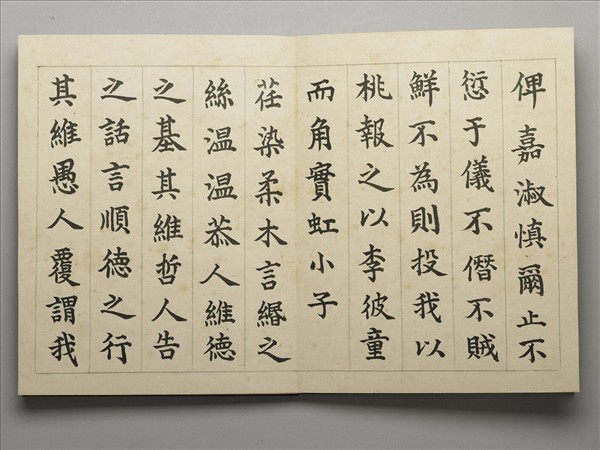 俾嘉淑慎爾止不
愆于儀不僭不賊
鮮不為則投我以
桃報之以李彼童
而角實虹小子
荏染柔木言緡之
絲温温恭人維德
之基其維哲人告
之話言順德之行
其維愚人覆謂我